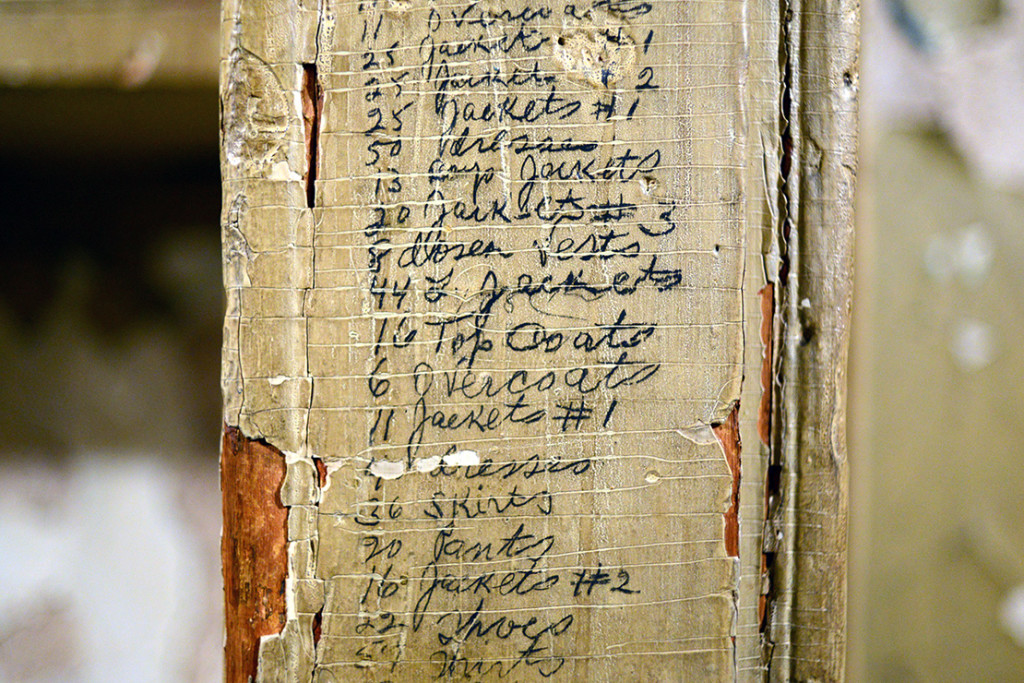 11 Overcoats
25 Jackets #1
25 Jackets 2
25 Jackets #1
50 dresses
13 Jackets
20 Jackets # 3
8 dozen Vests
44 L. Jackets
16 Top Coats
6 Overcoats
11 Jackets #1
dresses
36 Skirts
20 Pants
16 Jackets #2
22 Shoes